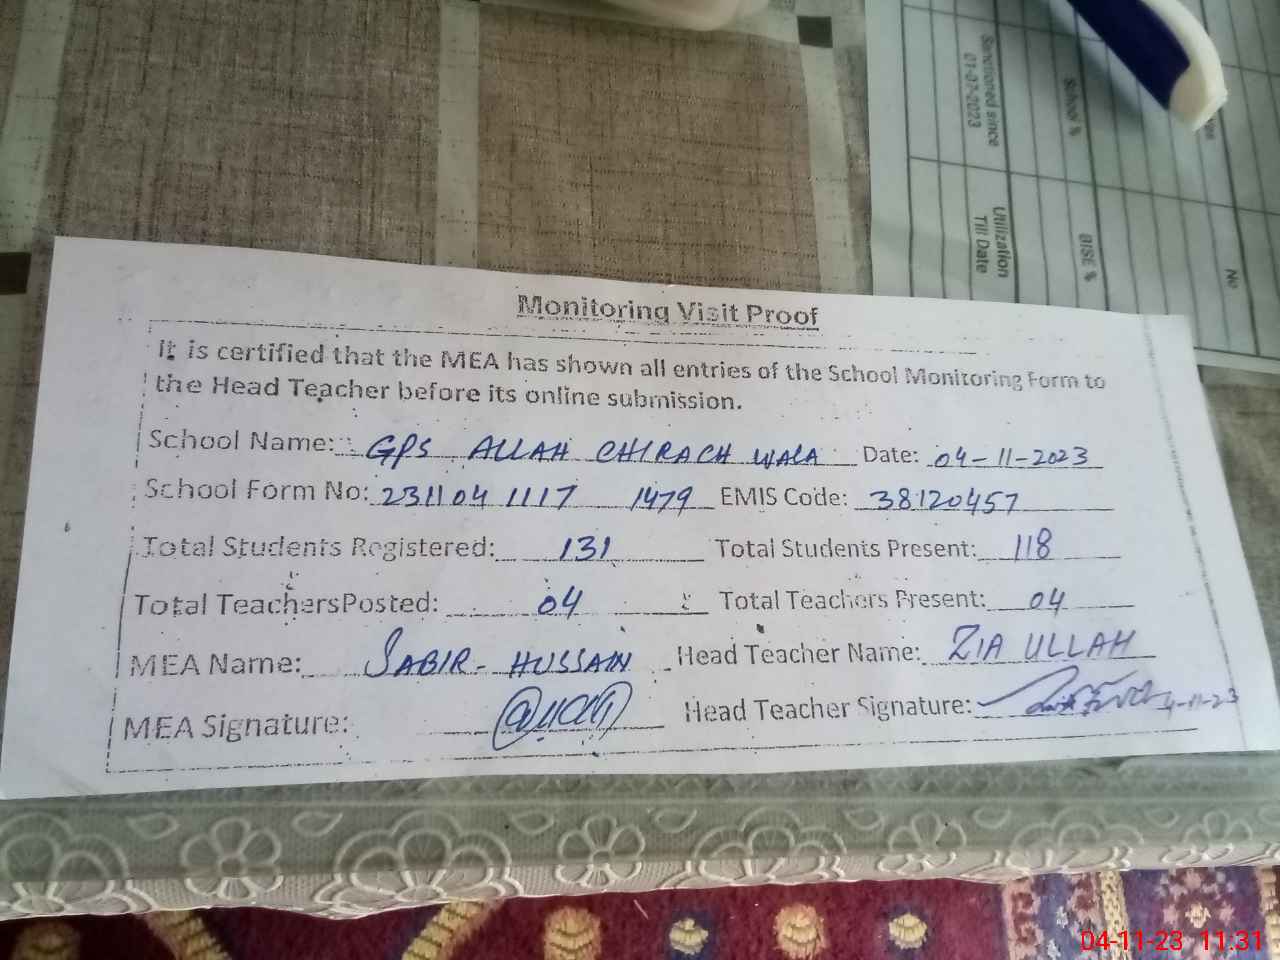 Sanctioned since
01-07-2023
School %
No
Utilization
Till Date
BISE %
Monitoring Visit Proof
It is certified that the MEA has shown all entries of the School Monitoring Form to
the Head Teacher before its online submission.
School Name: GPS ALLAH CHIRAGH WALA Date: 04-11-2023
School Form No: 231104 1117 1479 EMIS Code: 38120457
Total Students Registered: 131 Total Students Present: 118
Total TeachersPosted: 04 Total Teachers Present: 04
MEA Name: SABIR-HUSSAIN Head Teacher Name: ZIA ULLAH
MEA Signature: Head Teacher Signature: 4-11-23
04-11-23 11:31